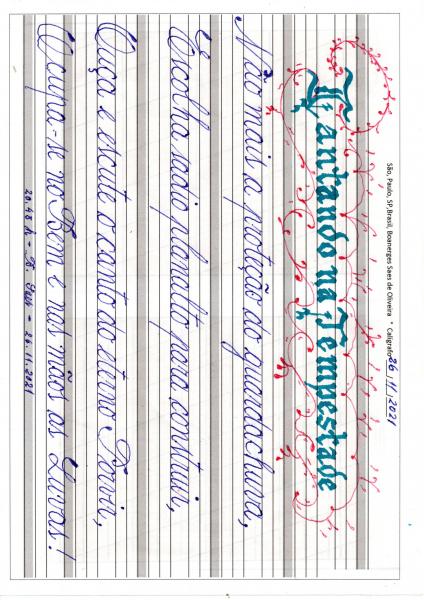 São, Paulo, SP, Brasil, Boanerges Saes de Oliveira * Calígrafo 26/11/2021
Cantando na Tempestade
Não mais a proteção do guardachuva,
Escolha sadio planalto para construir,
Ouça e escute o canto do eterno Porvir,
Ocupa-se no Bem e nas mãos as Luvas!
20.48 h = = 26.11.2021